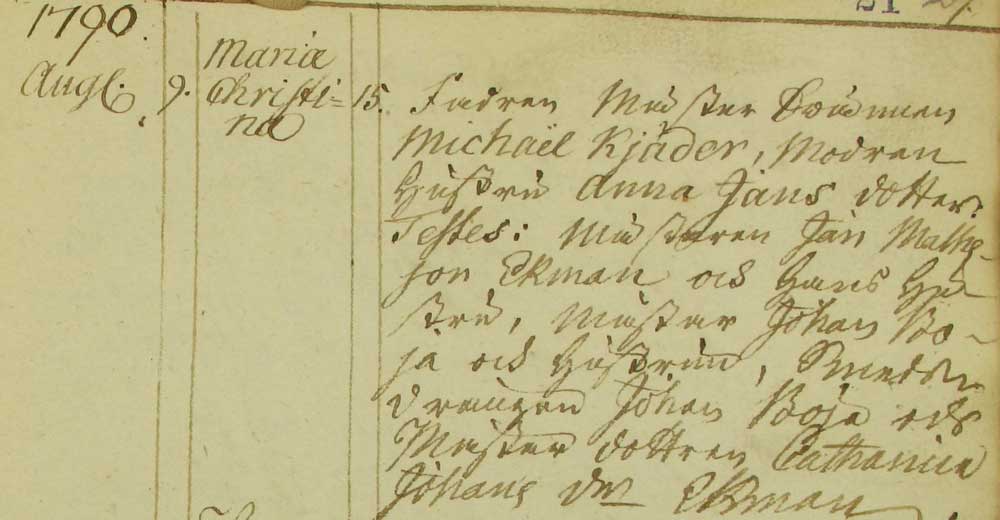 1790.
Augl. 9. Mariæ Christi= na 15. Fadren Mäster
Michaël Kjäder, Modren
Hustru Anna Jans dotter.
Testes: Mästaren Jan Mathz-
son Ekman och Hans Hu-
stru, Mäster Johan Bo-
ja och Hustrun, Smeds
drängen Johan Boja och
Mäster dottren Catharina
Johans dr Ekman